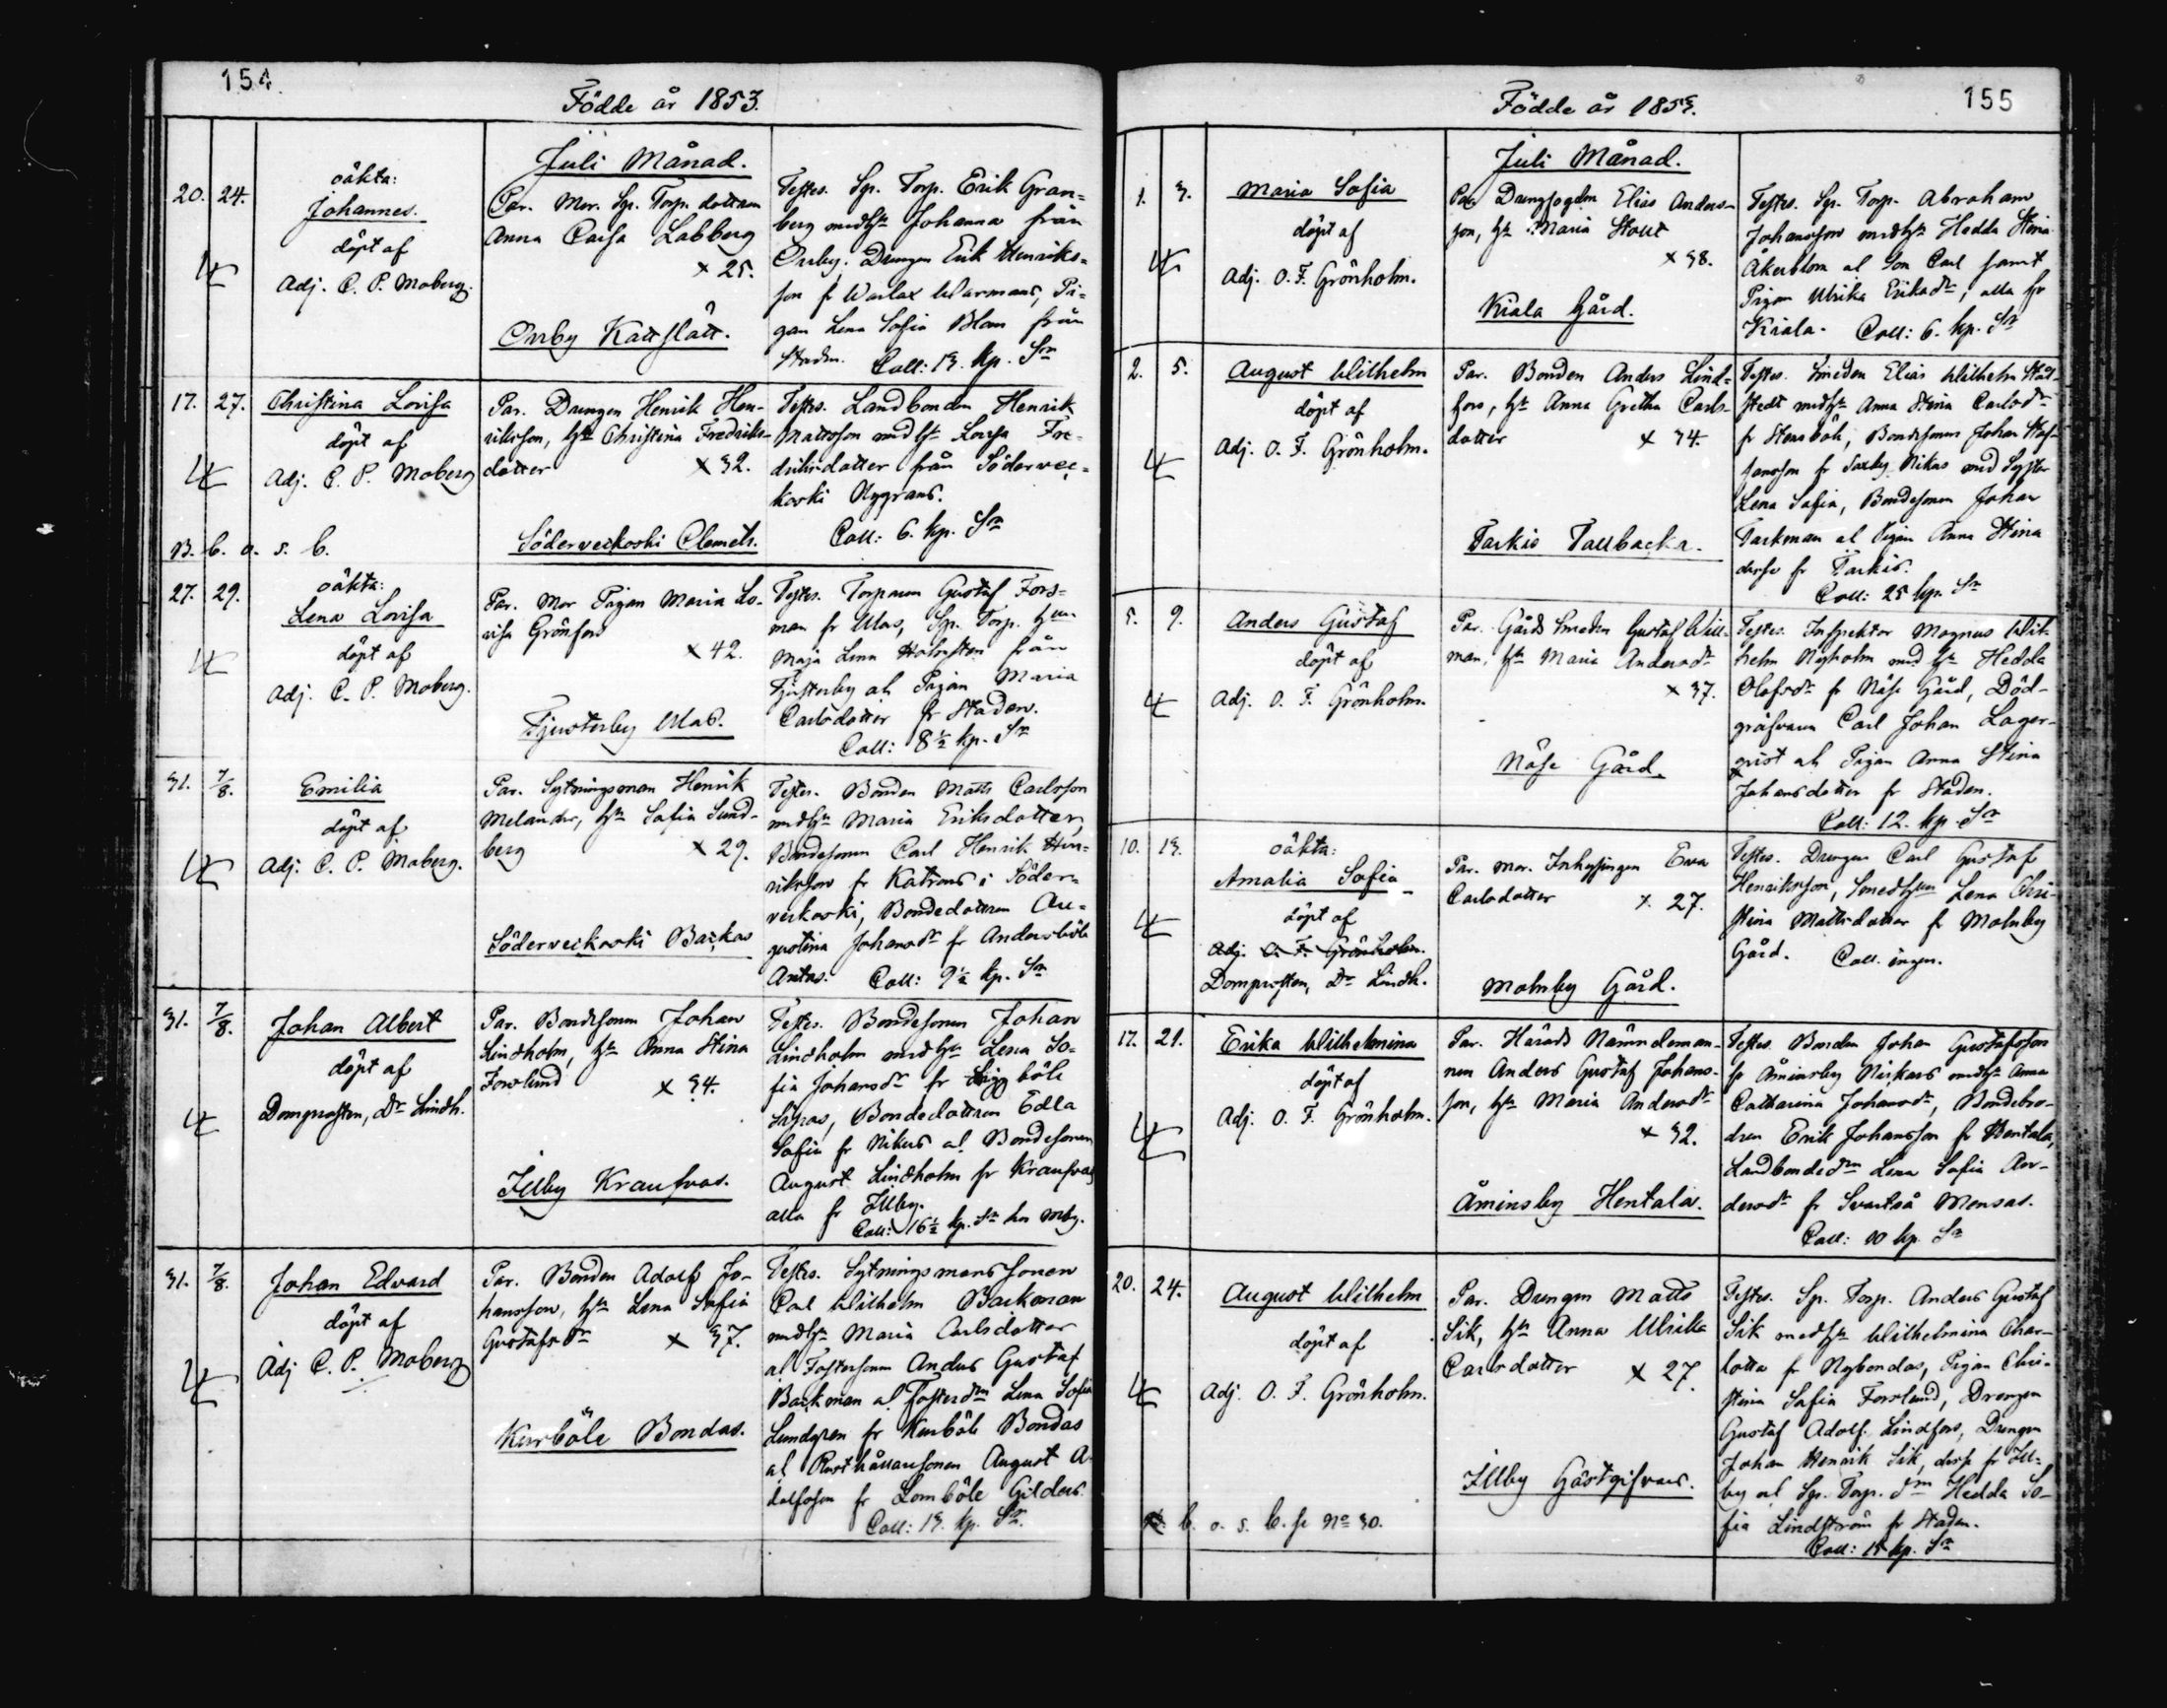 154.
Födde år 1853.
Juli Månad.
20. 24.
oäkta:
Johannes.
döpt af
Adj. C. P. Moberg.
Par. Mor. Sp. Torp. dottren
Anna Caisa Labberg
x 25.
Orrby Kattslätt.
Testes. Sp. Torp. Erik Gran-
berg med hu Johanna från
Orrby, Drengen Erik Henriks-
son fr Warlax Warmans, Pi-
gan Lena Sofia Blom från
Staden. Coll: 13. kp. Sr
17. 27.
Christina Lovisa
döpt af
Adj. C. P. Moberg
B. b. o. s. b.
Par. Drengen Henrik Hen-
riksson, hu Christina Fredriks-
dotter x 32.
Söderveckoski Clemets.
Testes. Landbonden Henrik
Mattsson med hu Lovisa Fre-
driksdotter från Södervec-
koski Nygrans.
Coll: 6. kp. Sr
27. 29.
oäkta:
Lena Lovisa
döpt af
Adj. C. P. Moberg.
Par. Mor Pigan Maria Lo-
visa Grönfors
x 42.
Tjusterby Mas.
Testes. Torparen Gustaf Fors-
man fr Mas, Sp. Torp. hun
Maja Lena Holmsten från
Tjusterby och Pigan Maria
Carlsdotter fr Staden.
Coll: 8½ kp. Sr
31. 7/8.
Emilia
döpt af
Adj. C. P. Moberg.
Par. Sytningsman Henrik
Melander, hu Sofia Sund-
berg x 29.
Söderveckoski Backas
Testes. Bonden Matts Carlsson
med hu Maria Eriksdotter,
Bondesonen Carl Henrik Hen-
riksson fr Katrens i Söder-
veckoski, Bondedottren Au-
gustina Johansdr fr Andersböle
Antas. Coll: 9½ kp. Sr
31. 7/8.
Johan Albert
döpt af
Domprosten, Dr Lindh.
Par. Bondesonen Johan
Lindholm, hu Anna Stina
Forslund x 34.
Illby Kraufvas.
Testes. Bondesonen Johan
Lindholm med hu Lena So-
fia Johansdr fr böle
Bondedottren Edla
Sofia fr Nikus al Bondesonen
August Lindholm fr Kraufvas
alla fr Illby.
Coll: 16½ kp. Sr hos Mbg.
31. 7/8.
Johan Edvard
döpt af
Adj C. P. Moberg
Par. Bonden Adolf Jo-
hansson, hu Lena Sofia
Gustafsdr x 37.
Kurböle Bondas.
Testes. Sytningsmans Sonen
Carl Wilhelm Backman
med hu Maria Carlsdotter
al Fostersonen Anders Gustaf
Backman al Fosterdrn Lena Sofia
Lundgren fr Kurböle Bondas
al Rusthållaresonen August A-
dolfsson fr Lomböle Gilders.
Coll: 13. kp. Sr.
155
Födde år 1853.
Juli Månad.
1. 3.
Maria Sofia
döpt af
Adj. O. F. Grönholm.
Par Drengfogden Elias Anders-
son, hu Maria Stout
x 38.
Kiala Gård.
Testes. Sp. Torp. Abraham
Johansson med hu Hedda Stina
Åkerblom al Son Carl samt
Pigan Ulrika Eriksdr, alla fr
Kiala. Coll: 6. kp. Sr
2. 5.
August Wilhelm
döpt af
Adj. O. F. Grönholm.
Par. Bonden Anders Lind-
fors, hu Anna Gretha Carls-
dotter x 34.
Tarkis Tallbacka.
Testes. Smeden Elias Wilhelm Stål-
stedt med hu Anna Stina Carlsdr
fr Stensböle, Bondesonen Johan Staf-
fansson fr Saxby Nikus med Syster
Lena Sofia, Bondesonen Johan
Tarkman al Pigan Anna Stina
derse fr Tarkis.
Coll: 25 kp. Sr
5. 9.
Anders Gustaf
döpt af
Adj. O. F. Grönholm.
Par. Gårds Smeden Gustaf Will-
man, hu Maria Andersdr
x 37.
Näse Gård.
Testes. Inspektor Magnus Wil-
helm Nyholm med hu Hedda
Olofsdr fr Näse Gård, Död-
gräfvaren Carl Johan Lager-
qvist och Pigan Anna Stina
Johansdotter fr Staden.
Coll: 12. kp. Sr
10. 13.
oäkta:
Amalia Sofia
döpt af
Adj. O. F. Grönholm.
Domprosten, Dr Lindh.
Par. Mor. Inhysingen Ewa
Carlsdotter x 27.
Malmby Gård.
Testes. Drengen Carl Gustaf
Henriksson, Smedhun Lena Chri-
stina Mattsdotter fr Malmby
Gård. Coll. ingen.
17. 21.
Erika Wilhelmina
döpt af
Adj. O. F. Grönholm.
Par. Härads Nämndeman-
nen Anders Gustaf Johans-
son, hu Maria Andersdr
x 32.
Åminsby Hentala.
Testes. Bonden Johan Gustafsson
fr Åminsby Nickars med hu Anna
Catharina Johansdr, Bondebro-
dren Erik Johansson fr Hentala,
Landbondedrn Lena Sofia An-
dersdr fr Svartså Mensas.
Coll: 10 kp. Sr
20. 24.
August Wilhelm
döpt af
Adj. O. F. Grönholm.
b. o. s. b. se No 30.
Par. Drengen Matts
Sik, hu Anna Ulrika
Carlsdotter x 27.
Illby Gästgifvars.
Testes. Sp. Torp. Anders Gustaf
Sik med hu Wilhelmina Char-
lotta fr Nybondas, Pigan Chri-
stina Sofia Forslund, Drengen
Gustaf Adolf Lindfors, Drengen
Johan Henrik Sik, derse fr Ill-
by och Sp. Torp. drn Hedda So-
fia Lindström fr Staden.
Coll: 15 kp. Sr